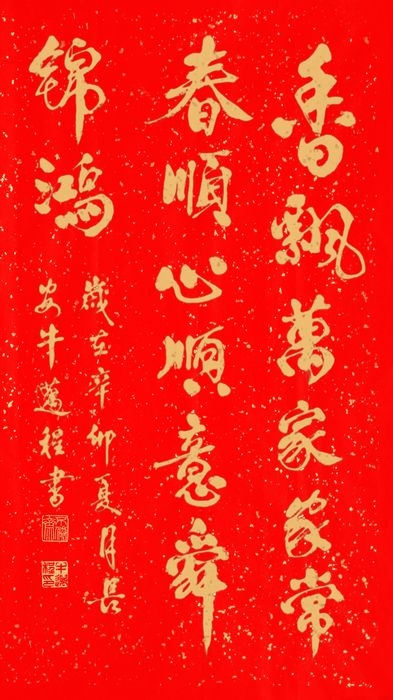 香飄萬家家常
春順心順意舜
錦鴻
歲在辛卯夏月長
安牛邁程書